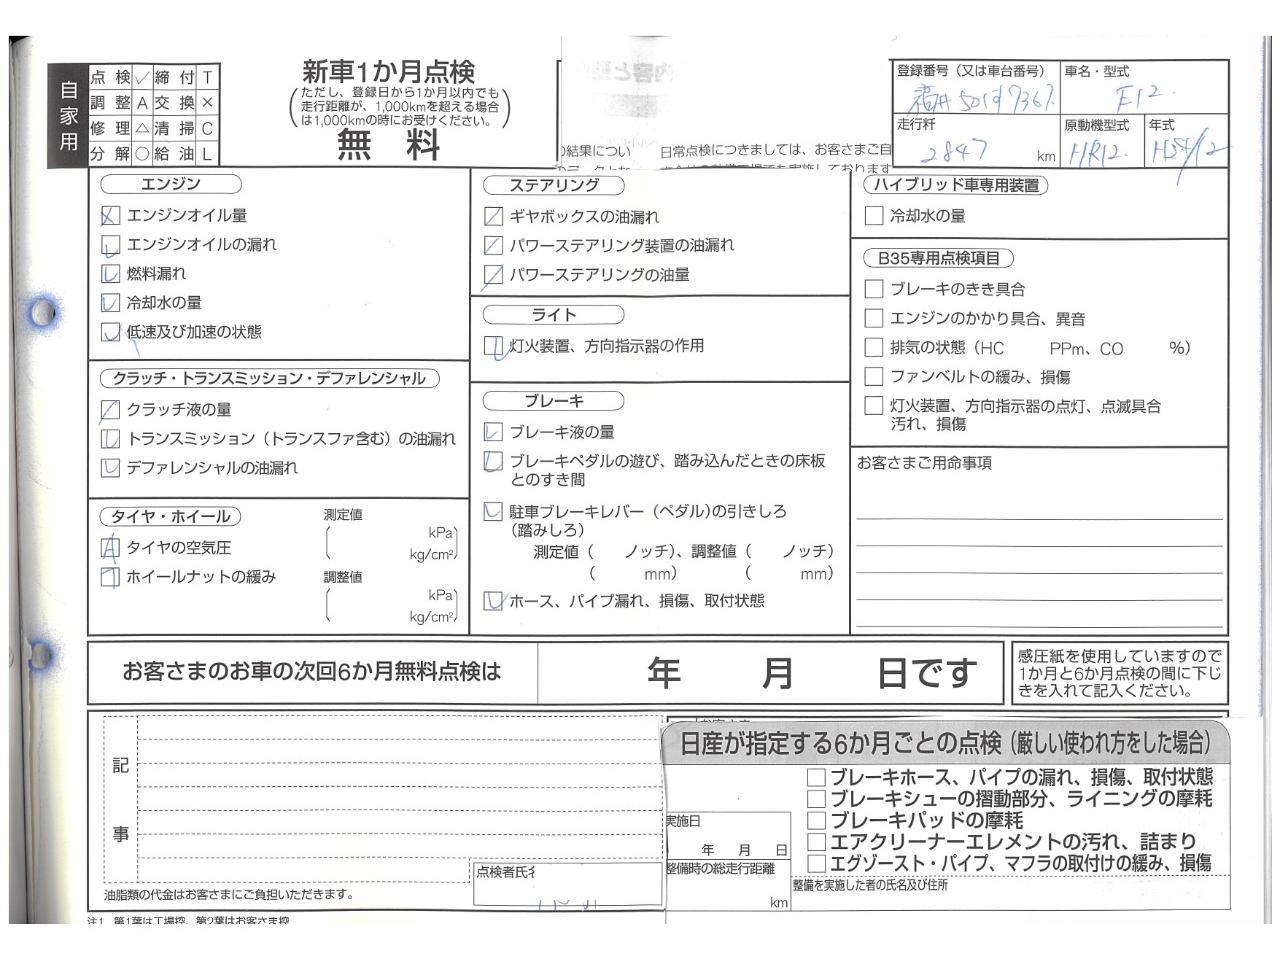 自家用
点検 ✓ 締付 T
調整 A 交換 ×
修理 △ 清掃 C
分解 ○ 給油 L
新車1か月点検
(ただし、登録日から1か月以内でも
走行距離が、1,000kmを超える場合
は1,000kmの時にお受けください。)
無料
の結果につい 日常点検につきましては、お客さまご自
登録番号(又は車台番号)
車名・型式
E12
走行粁
2847 km
原動機型式
HR12
年式
エンジン
エンジンオイル量
エンジンオイルの漏れ
燃料漏れ
冷却水の量
低速及び加速の状態
クラッチ・トランスミッション・デファレンシャル
クラッチ液の量
トランスミッション(トランスファ含む)の油漏れ
デファレンシャルの油漏れ
タイヤ・ホイール
測定値
タイヤの空気圧
kPa
kg/cm²
ホイールナットの緩み
調整値
kPa
kg/cm²
ステアリング
ギヤボックスの油漏れ
パワーステアリング装置の油漏れ
パワーステアリングの油量
ライト
灯火装置、方向指示器の作用
ブレーキ
ブレーキ液の量
ブレーキペダルの遊び、踏み込んだときの床板
とのすき間
駐車ブレーキレバー(ペダル)の引きしろ
(踏みしろ)
測定値( ノッチ)、調整値( ノッチ)
( mm) ( mm)
ホース、パイプ漏れ、損傷、取付状態
ハイブリッド車専用装置
冷却水の量
B35専用点検項目
ブレーキのきき具合
エンジンのかかり具合、異音
排気の状態(HC PPm、CO %)
ファンベルトの緩み、損傷
灯火装置、方向指示器の点灯、点滅具合
汚れ、損傷
お客さまご用命事項
お客さまのお車の次回6か月無料点検は 年 月 日です
感圧紙を使用していますので
1か月と6か月点検の間に下じ
きを入れて記入ください。
記事
油脂類の代金はお客さまにご負担いただきます。
点検者氏名
日産が指定する6か月ごとの点検(厳しい使われ方をした場合)
ブレーキホース、パイプの漏れ、損傷、取付状態
ブレーキシューの摺動部分、ライニングの摩耗
ブレーキパッドの摩耗
エアクリーナーエレメントの汚れ、詰まり
エグゾースト・パイプ、マフラの取付けの緩み、損傷
実施日
年 月 日
整備時の総走行距離
km
整備を実施した者の氏名及び住所
注1. 第1葉は工場控、第2葉はお客さま控